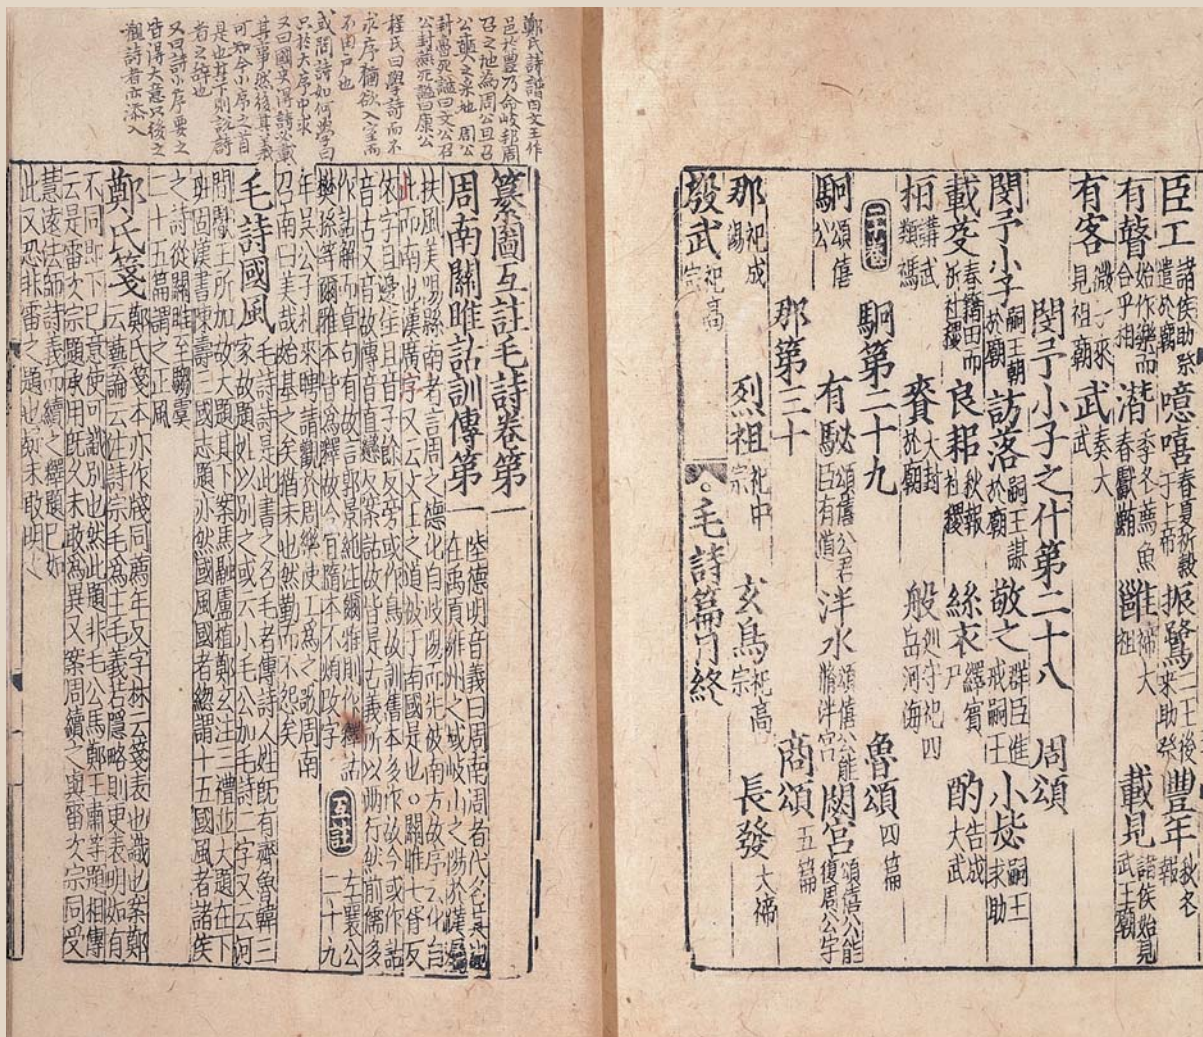 臣工 諸侯助祭遣於廟 噫嘻 春夏祈穀于上帝 振鷺 二王後來助祭 豐年 秋冬報
有瞽 始作樂而合乎祖 潛 季冬薦魚春獻鮪 雝 禘大祖 載見 諸侯始見武王廟
有客 微子來見祖廟 武 奏大武
閔予小子之什第二十八 周頌
閔予小子 嗣王朝於廟 訪落 嗣王謀於廟 敬之 群臣進戒嗣王 小毖 嗣王求助
載芟 春籍田而祈社稷 良耜 秋報社稷 絲衣 繹賓尸 酌 告成大武
桓 講武類禡 賚 大封於廟 般 巡守祀四岳河海
二十卷 駉第二十九 魯頌 四篇
駉 頌僖公 有駜 頌僖公君臣有道 泮水 頌僖公能脩泮宮 閟宮 頌僖公能復周公宇
那第三十 商頌 五篇
那 祀成湯 烈祖 祀中宗 玄鳥 祀高宗 長發 大禘
殷武 祀高宗 毛詩篇目終
鄭氏詩譜曰文王作
邑於豐乃命岐邦周
召之地為周公旦召
公奭之采地 周公
封魯死謚曰文公召
公封燕死謚曰康公
程氏曰學詩而不
求序猶欲入室而
不由戶也
或問詩如何學曰
只於大序中求
又曰國史得詩必載
其事然後其義
可知今小序之首
是也其下則說詩
者之辭也
又曰詩小序要之
皆得大意只後之
觀詩者亦添入
纂圖互註毛詩卷第一
周南關雎詁訓傳第一 陸德明音義曰周南周者代名
在禹貢雍州之域岐山之陽於漢屬
扶風美陽縣南者言周之德化自岐陽而先被南方故序云化自
北而南也漢廣序又云文王之道被于南國是也。關雎七胥反
依字且邊隹且音子餘反旁或作鳥故訓舊本多作故今或作詁
音古又音故傳音直戀反案詁故皆是古義所以兩行然前儒多
作詁解而章句有故言郭景純注爾雅則作釋詁
樊孫等爾雅本皆為釋故今宜隨本不煩改字 互註 左襄公二十九
年吳公子札來聘請觀於周樂使工為之歌周南
召南曰美哉始基之矣猶未也然勤而不怨矣
毛詩國風 毛詩詩是此書之名毛者傳詩人姓既有齊魯韓三
家故題姓以別之或云小毛公加毛詩二字又云河
間獻王所加故大題其下案馬融盧植鄭玄注三禮並大題在下
班固漢書陳壽三國志題亦然國風國者緫謂十五國風者諸侯
之詩從關雎至騶虞
二十五篇謂之正風
鄭氏箋 鄭氏箋本亦作牋同薦年反字林云箋表也識也案鄭
六藝論云注詩宗毛為主毛義若隱略則更表明如有
不同即下己意使可識別也然此題非毛公馬鄭王肅等題相傳
云是雷次宗題承用既久未敢為異又案周續之與雷次宗同受
慧遠法師詩義而續之釋題已如
此又恐非雷之題也疑未敢明之